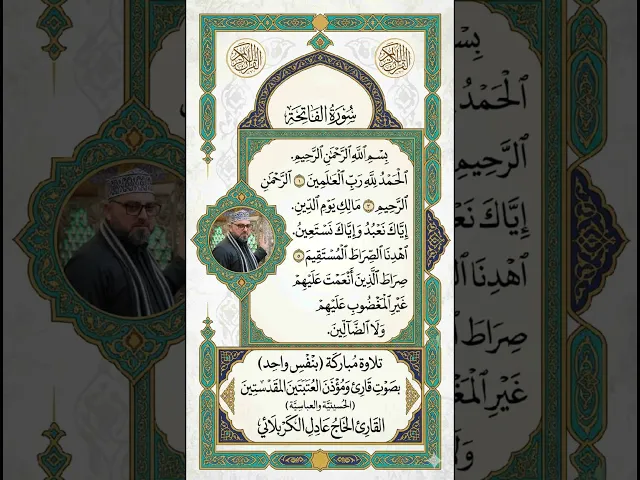 القرآن الكريم
القرآن الكريم
سُورَةُ الفَاتِحَةِ
بِسْمِ ٱللَّهِ ٱلرَّحْمَٰنِ ٱلرَّحِيمِ.
ٱلْحَمْدُ لِلَّهِ رَبِّ ٱلْعَالَمِينَ ١ ٱلرَّحْمَٰنِ
ٱلرَّحِيمِ ٣ مَالِكِ يَوْمِ ٱلدِّينِ.
إِيَّاكَ نَعْبُدُ وَإِيَّاكَ نَسْتَعِينُ.
ٱهْدِنَا ٱلصِّرَاطَ ٱلْمُسْتَقِيمَ ٥
صِرَاطَ ٱلَّذِينَ أَنْعَمْتَ عَلَيْهِمْ
غَيْرِ ٱلْمَغْضُوبِ عَلَيْهِمْ
وَلَا ٱلضَّالِّينَ.
تلاوة مُباركَة (بنْفَسٍ واحِد)
بصَوْتِ قَارِئ وَمُؤَذّن العُتبَتَين المَقدّسَتِين
(الحُسينيَّة والعباسِيَّة)
القَارِئ الحَاجّ عَادِل الكَرْبَلَائي